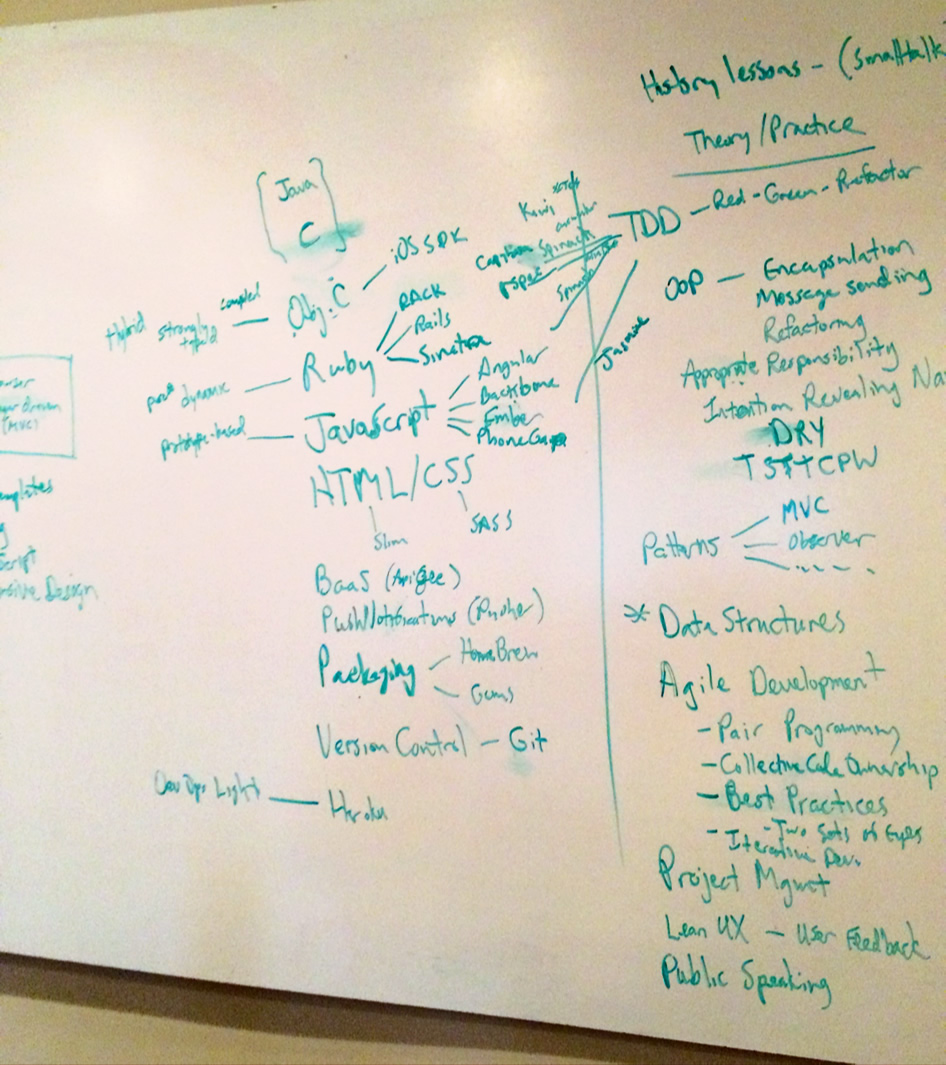 History lessons - (Smalltalk
Theory/Practice
[Java
C]
TDD - Red-Green-Refactor
Kiwi
Spinach
rspec
Jasmine
OOP - Encapsulation
Message sending
Refactoring
Appropriate Responsibility
Intention Revealing Na
DRY
TSTTCPW
Patterns
MVC
Observer
Hybrid strongly typed compiled - Obj. C
iOS SDK
dynamic - Ruby
RACK
Rails
Sinatra
prototype-based - JavaScript
Angular
Backbone
Ember
PhoneGap
HTML/CSS
Slim
SASS
BaaS (Apigee)
Push Notifications (Pusher)
Packaging
HomeBrew
Gems
Version Control - Git
DevOps Light - Heroku
(MVC)
Design
* Data Structures
Agile Development
- Pair Programming
- Collective Code Ownership
- Best Practices
- Two Sets of Eyes
- Iterative Dev.
Project Mgmt
Lean UX - User Feedback
Public Speaking